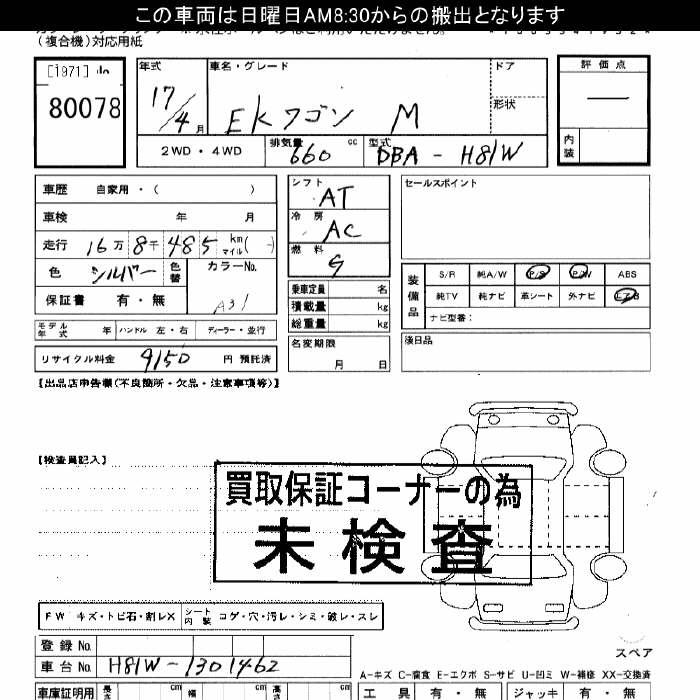 この車両は日曜日AM8:30からの搬出となります
（複合機）対応用紙
[1971]
80078
年式
17/4 月
車名・グレード
EKワゴン M
ドア
形状
2WD・4WD
排気量 660 cc
型式 DBA-H81W
評価点
内装
車歴 自家用・（ ）
車検 年 月
走行 16万8千485 km マイル( )
色 シルバー 色替
カラーNo. A31
保証書 有・無
モデル年式 年 ハンドル 左・右 ディーラー・並行
リサイクル料金 9150 円 預託済
シフト AT
冷房 AC
燃料 G
乗車定員 名
積載量 kg
総重量 kg
名変期限 月 日
セールスポイント
装備品
S/R 純A/W P/S P/W ABS
純TV 純ナビ 革シート 外ナビ エアB
ナビ型番：
後日品
【出品店申告欄(不良箇所・欠品・注意事項等)】
【検査員記入】
買取保証コーナーの為
未検査
FW キズ・トビ石・割レX シート内装 コゲ・穴・汚レ・シミ・破レ・スレ
登録No.
車台No. H81W-1301462
スペア
A-キズ C-腐食 E-エクボ S-サビ U-凹ミ W-補修 XX-交換済
車庫証明用 長さ cm 幅 cm 高さ cm
工具 有・無 ジャッキ 有・無